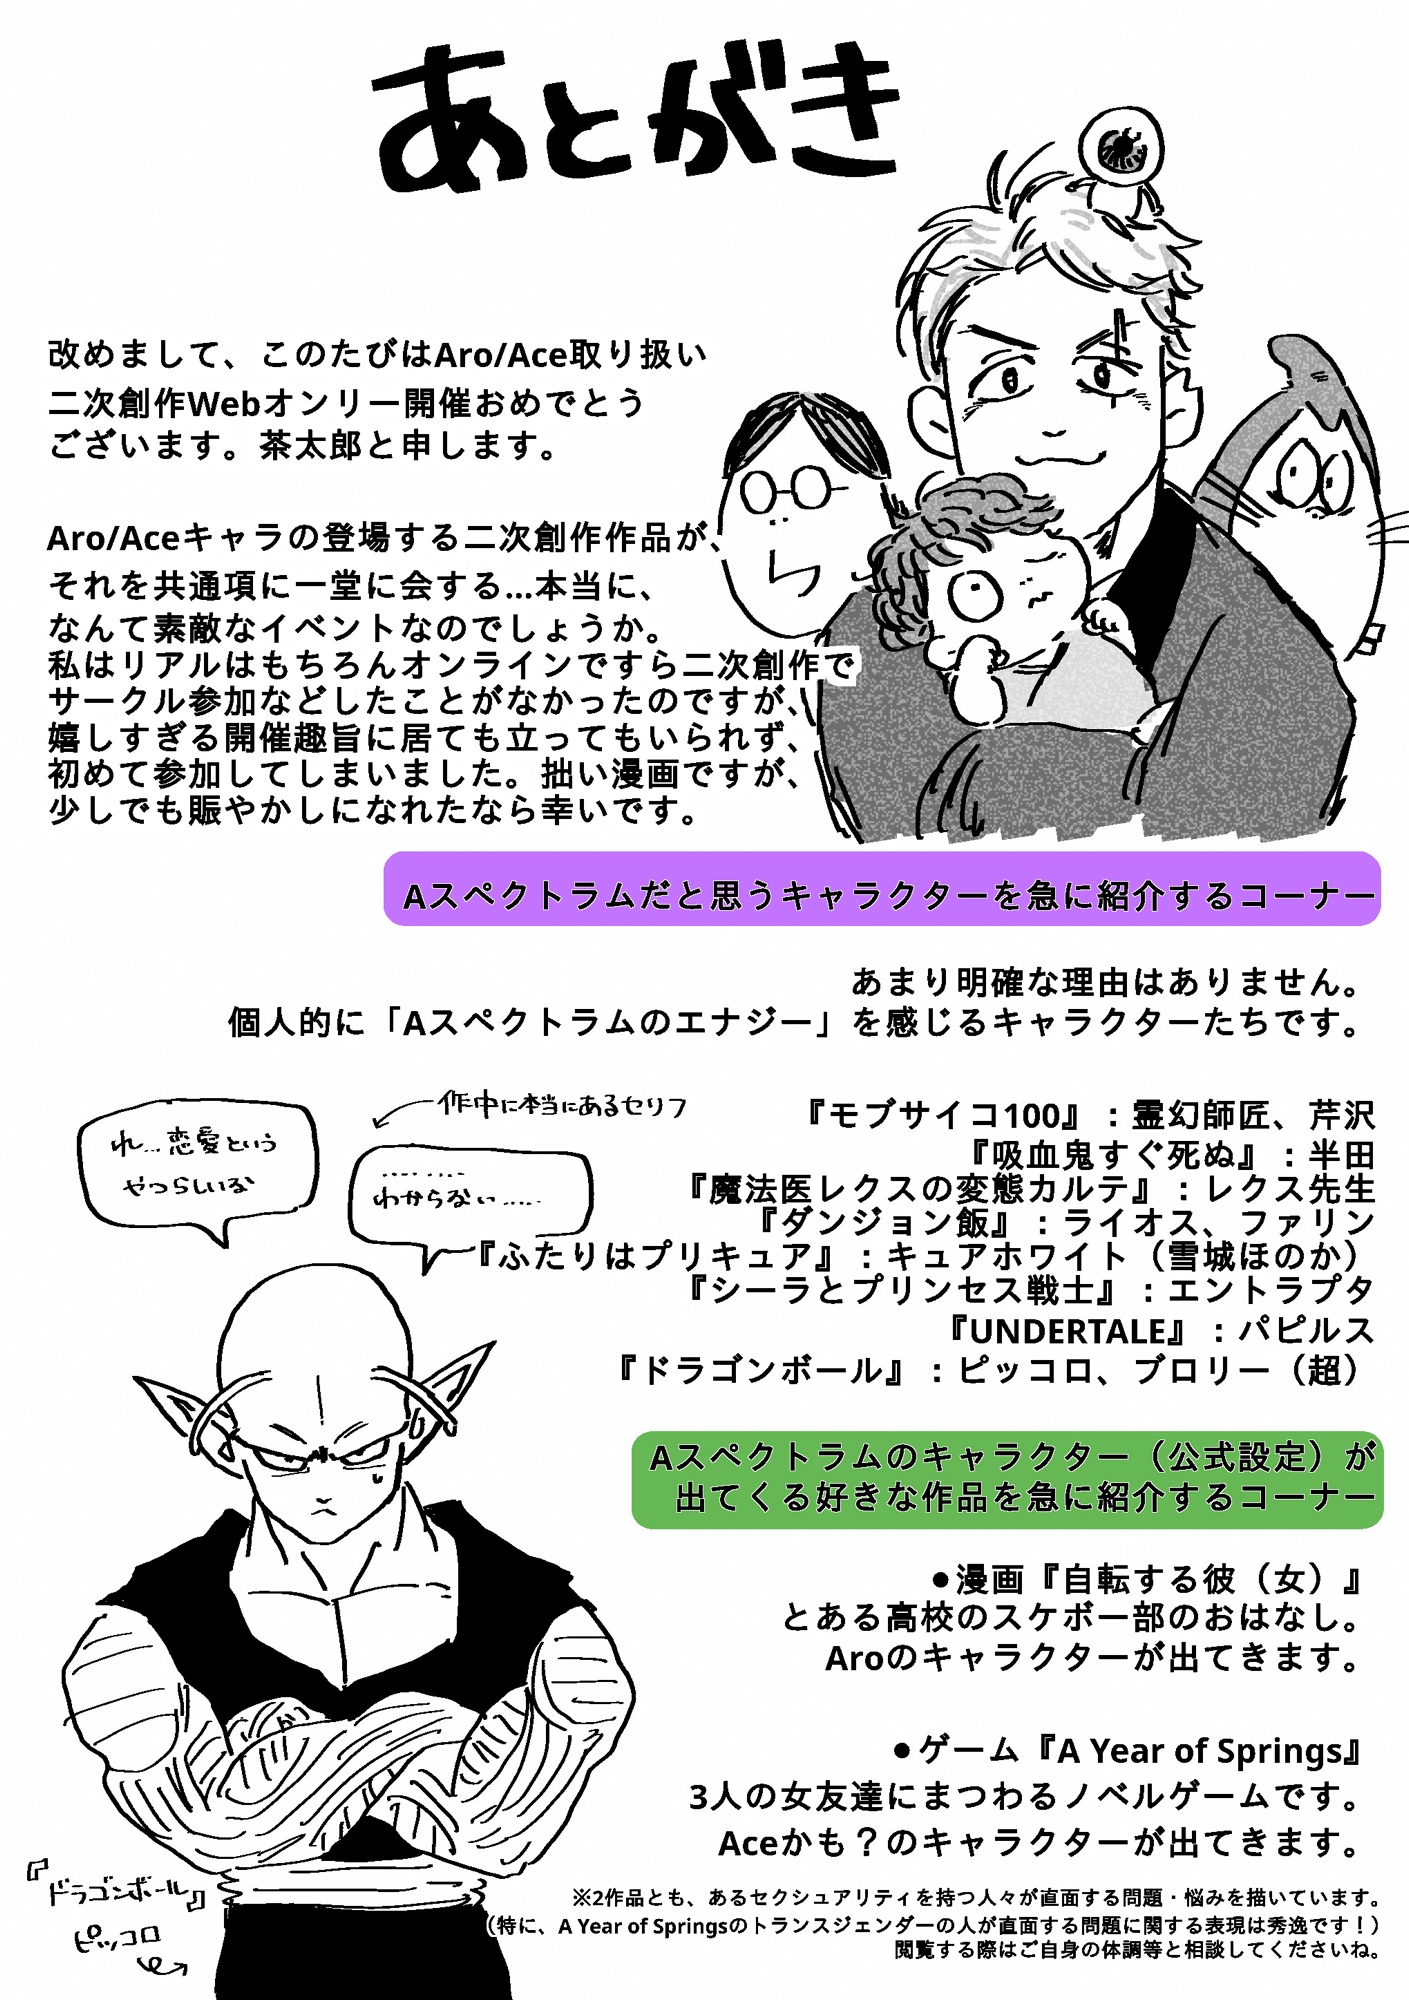 あとがき
改めまして、このたびはAro/Ace取り扱い
二次創作Webオンリー開催おめでとう
ございます。茶太郎と申します。
Aro/Aceキャラの登場する二次創作作品が、
それを共通項に一堂に会する…本当に、
なんて素敵なイベントなのでしょうか。
私はリアルはもちろんオンラインですら二次創作で
サークル参加などしたことがなかったのですが、
嬉しすぎる開催趣旨に居ても立ってもいられず、
初めて参加してしまいました。拙い漫画ですが、
少しでも賑やかしになれたなら幸いです。
Aスペクトラムだと思うキャラクターを急に紹介するコーナー
あまり明確な理由はありません。
個人的に「Aスペクトラムのエナジー」を感じるキャラクターたちです。
作中に本当にあるセリフ
れ…恋愛という
やつらしいな
………
わからない……
『モブサイコ100』：霊幻師匠、芹沢
『吸血鬼すぐ死ぬ』：半田
『魔法医レクスの変態カルテ』：レクス先生
『ダンジョン飯』：ライオス、ファリン
『ふたりはプリキュア』：キュアホワイト（雪城ほのか）
『シーラとプリンセス戦士』：エントラプタ
『UNDERTALE』：パピルス
『ドラゴンボール』：ピッコロ、ブロリー（超）
Aスペクトラムのキャラクター（公式設定）が
出てくる好きな作品を急に紹介するコーナー
●漫画『自転する彼（女）』
とある高校のスケボー部のおはなし。
Aroのキャラクターが出てきます。
●ゲーム『A Year of Springs』
3人の女友達にまつわるノベルゲームです。
Aceかも？のキャラクターが出てきます。
※2作品とも、あるセクシュアリティを持つ人々が直面する問題・悩みを描いています。
（特に、A Year of Springsのトランスジェンダーの人が直面する問題に関する表現は秀逸です！）
閲覧する際はご自身の体調等と相談してくださいね。
『ドラゴンボール』
ピッコロ